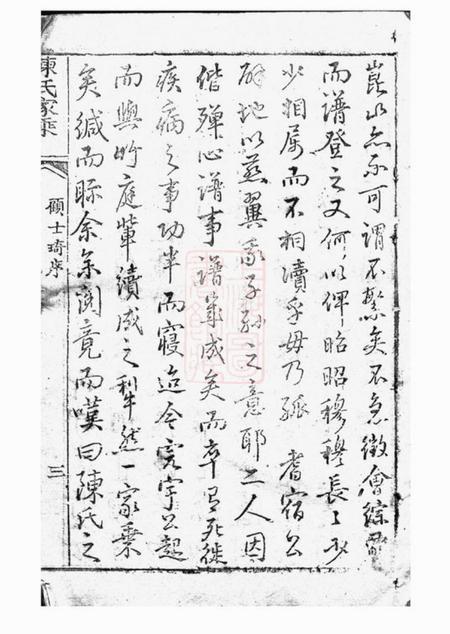 崑水亦不可謂不繁矣不急徵會綜
而譜登之又何以俾昭昭穆穆長長少
少相屬而不相瀆乎毋乃孤耆宿公
地以燕翼我子孫之意耶二人因
偕殫心譜事譜策成矣而卒有死徙
疾病之事功半而寢迨今寰宇公起
而與竹庭輩續成之犁然一家乘
矣緘而眎余余閱竟而嘆曰陳氏之
陳氏家乘
顧士琦序
三